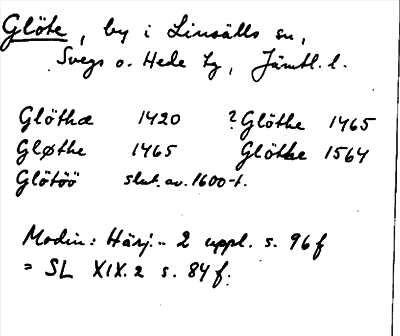 Glöte, by i Linsälls sn,
Svegs o. Hede tg, Jämtl. l.
Glöthæ 1420 ? Glöthe 1465
Gløthe 1465 Glöthe 1564
Glötöö slut. av. 1600-t.
Modin: Härj.. 2 uppl. s. 96 f
= SL XIX. 2 s. 84 f.